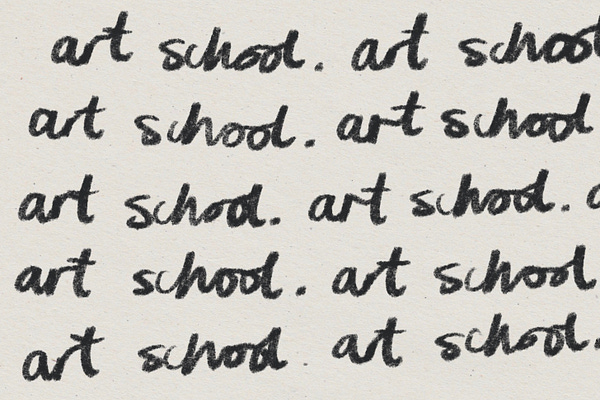 art school. art school
art school. art school
art school. art school. a
art school. art school.
art school. art school.